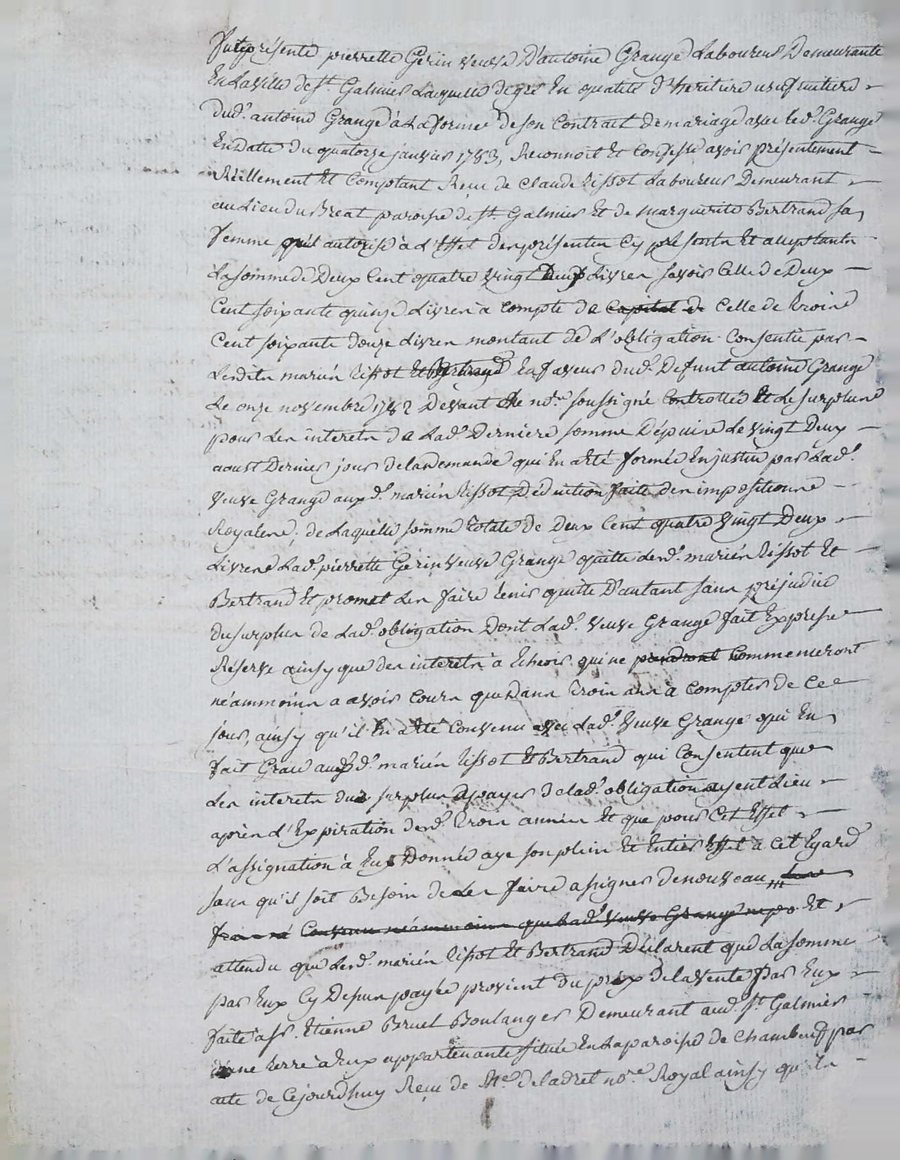 Fut présente pierrette Gerin veuve D'antoine Grange Laboureur Demeurante
En La ville de St. Galmier Laquelle de gré En qualité d'heritiere usufruitiere
Dud. antoine Grange à La forme de son Contrat De mariage avec led. Grange
En Datte du quatorze janvier 1753, Reconnoit Et Confesse avoir présentement
Réellement Et Comptant Reçu de Claude Tissot Laboureur Demeurant
au Lieu du Breat paroisse de St. Galmier Et de marguerite Bertrand sa
femme qu'il autorise à L'Effet des présentes Cy présents Et acceptants
La somme de Deux Cent quatre vingt Deux Livres savoir Celle de Deux
Cent soixante quinze Livres à Compte de Capital de Celle de trois
Cent soixante douze Livres montant de L'obligation Consentie par
Lesdits mariés Tissot Et Bertrand En faveur dud. Defunt antoine Grange
Le onze novembre Devant Le no.re soussigné Controttée Et Le surplus
pour Les interets de Lad. Derniere somme Dépuis Le vingt Deux
aoust Dernier jour de la demande qui En a été formée En justice par Lad.
veuve Grange auxd. mariés Tissot Déduction faite des impositions
Royales, de Laquelle somme totale de Deux Cent quatre vingt Deux
Livres Lad. pierrette Gerin veuve Grange quitte Lesd. mariés Tissot Et
Bertrand Et promet Les faire tenir quitte D'autant sans préjudice
du surplus de Lad. obligation Dont Lad. veuve Grange fait Expresse
Réserve ainsy que des interets à Echeoir qui ne prendront Commenceront
néammoins a avoir Cours que Dans trois ans à Compter de Ce
jour, ainsy qu'il En a été Convenu avec Lad. veuve Grange qui En
fait Grace auxd. mariés Tissot Et Bertrand qui Consentent que
Les interets du surplus à payer de lad. obligation ayent Lieu
après L'Expiration desd. trois années Et que pour Cet Effet
L'assignation à Eux Donnée aye son plein Et Entier Effet à Cet Egard
sans qu'il soit Besoin de Les faire assigner de nouveau
Convenu néammoins que Lad. veuve Grange Et
attendu que Lesd. mariés Tissot Et Bertrand Déclarent que La somme
par Eux Cy Dessus payée provient du prix de la vente par Eux
faite a sr. Etienne Bruel Boulanger Demeurant aud. St. Galmier
D'une terre à Eux appartenante située En La paroisse de Chambeuf par
acte de Cejourdhuy Reçu de Me. Deladret no.re Royal ainsy qu'ils